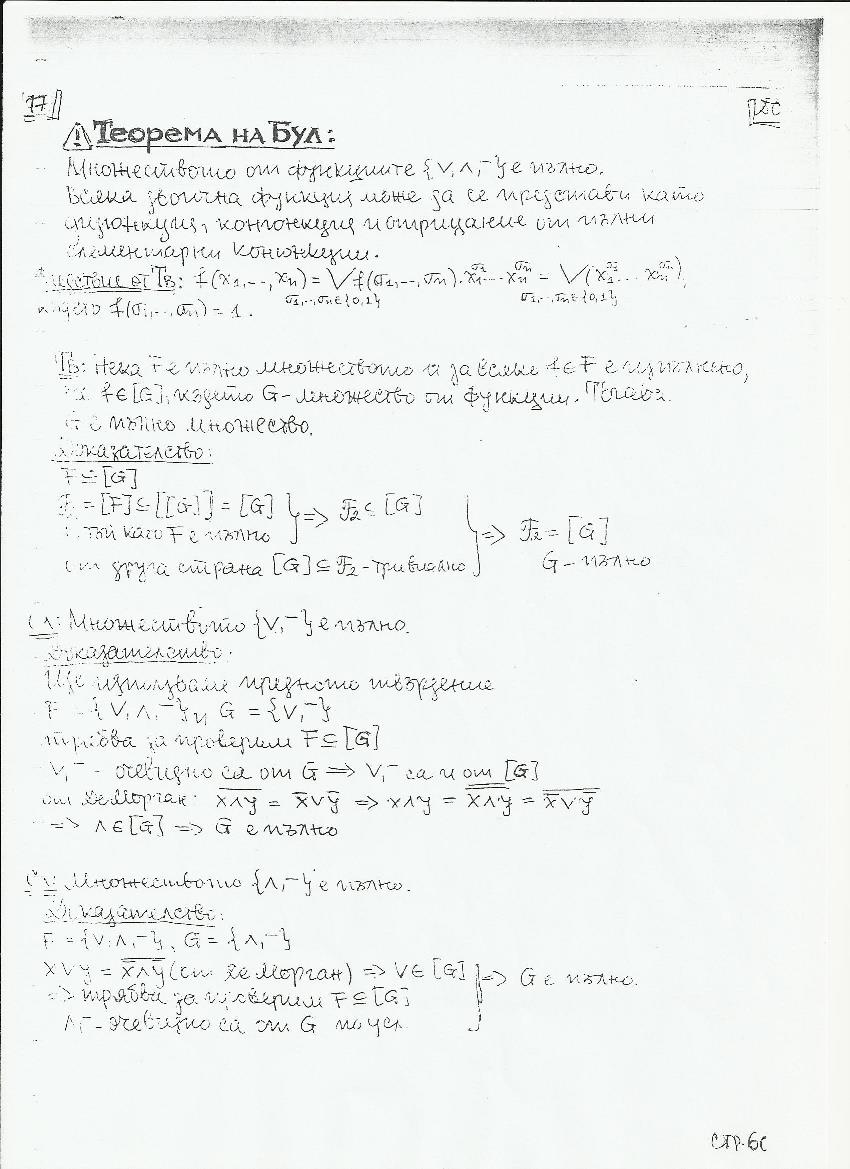 77
ДС
Теорема на Бул:
Множеството от функциите {V, Λ, ¯} е пълно.
Всяка двоична функция може да се представи като
дизюнкция, конюнкция и отрицание от пълни
елементарни конюнкции.
следствие от Тв: f(x₁,..,xₙ) = V f(σ₁,..,σₙ).x₁^σ₁...xₙ^σₙ = V(x₁^σ₁...xₙ^σₙ),
σ₁,..,σₙ∈{0,1} σ₁,..,σₙ∈{0,1}
където f(σ₁,..,σₙ) = 1.
Тв: Нека F е пълно множеството и за всяка f∈F е изпълнено,
че f∈[G], където G - множество от функции. Тогава
G е пълно множество.
Доказателство:
F⊆[G]
F₂ = [F]⊆[[G]] = [G] => F₂⊆[G]
тъй като F е пълно => F₂ = [G]
от друга страна [G]⊆F₂ - тривиално G - пълно
Сл: Множеството {V, ¯} е пълно.
Доказателство:
Ще използваме предното твърдение
F = {V, Λ, ¯} и G = {V, ¯}
трябва да проверим F⊆[G]
V, ¯ - очевидно са от G => V, ¯ са и от [G]
от Де Морган: x̅Λ̅y̅ = x̅Vy̅ => xΛy = x̿Λ̿y̿ = \overline{x̅Vy̅}
=> Λ∈[G] => G е пълно
Сл: Множеството {Λ, ¯} е пълно.
Доказателство:
F = {V, Λ, ¯}, G = {Λ, ¯}
xVy = \overline{x̅Λy̅} (от Де Морган) => V∈[G] => G е пълно.
=> трябва да проверим F⊆[G]
Λ, ¯ - очевидно са от G по усл.
стр. 60